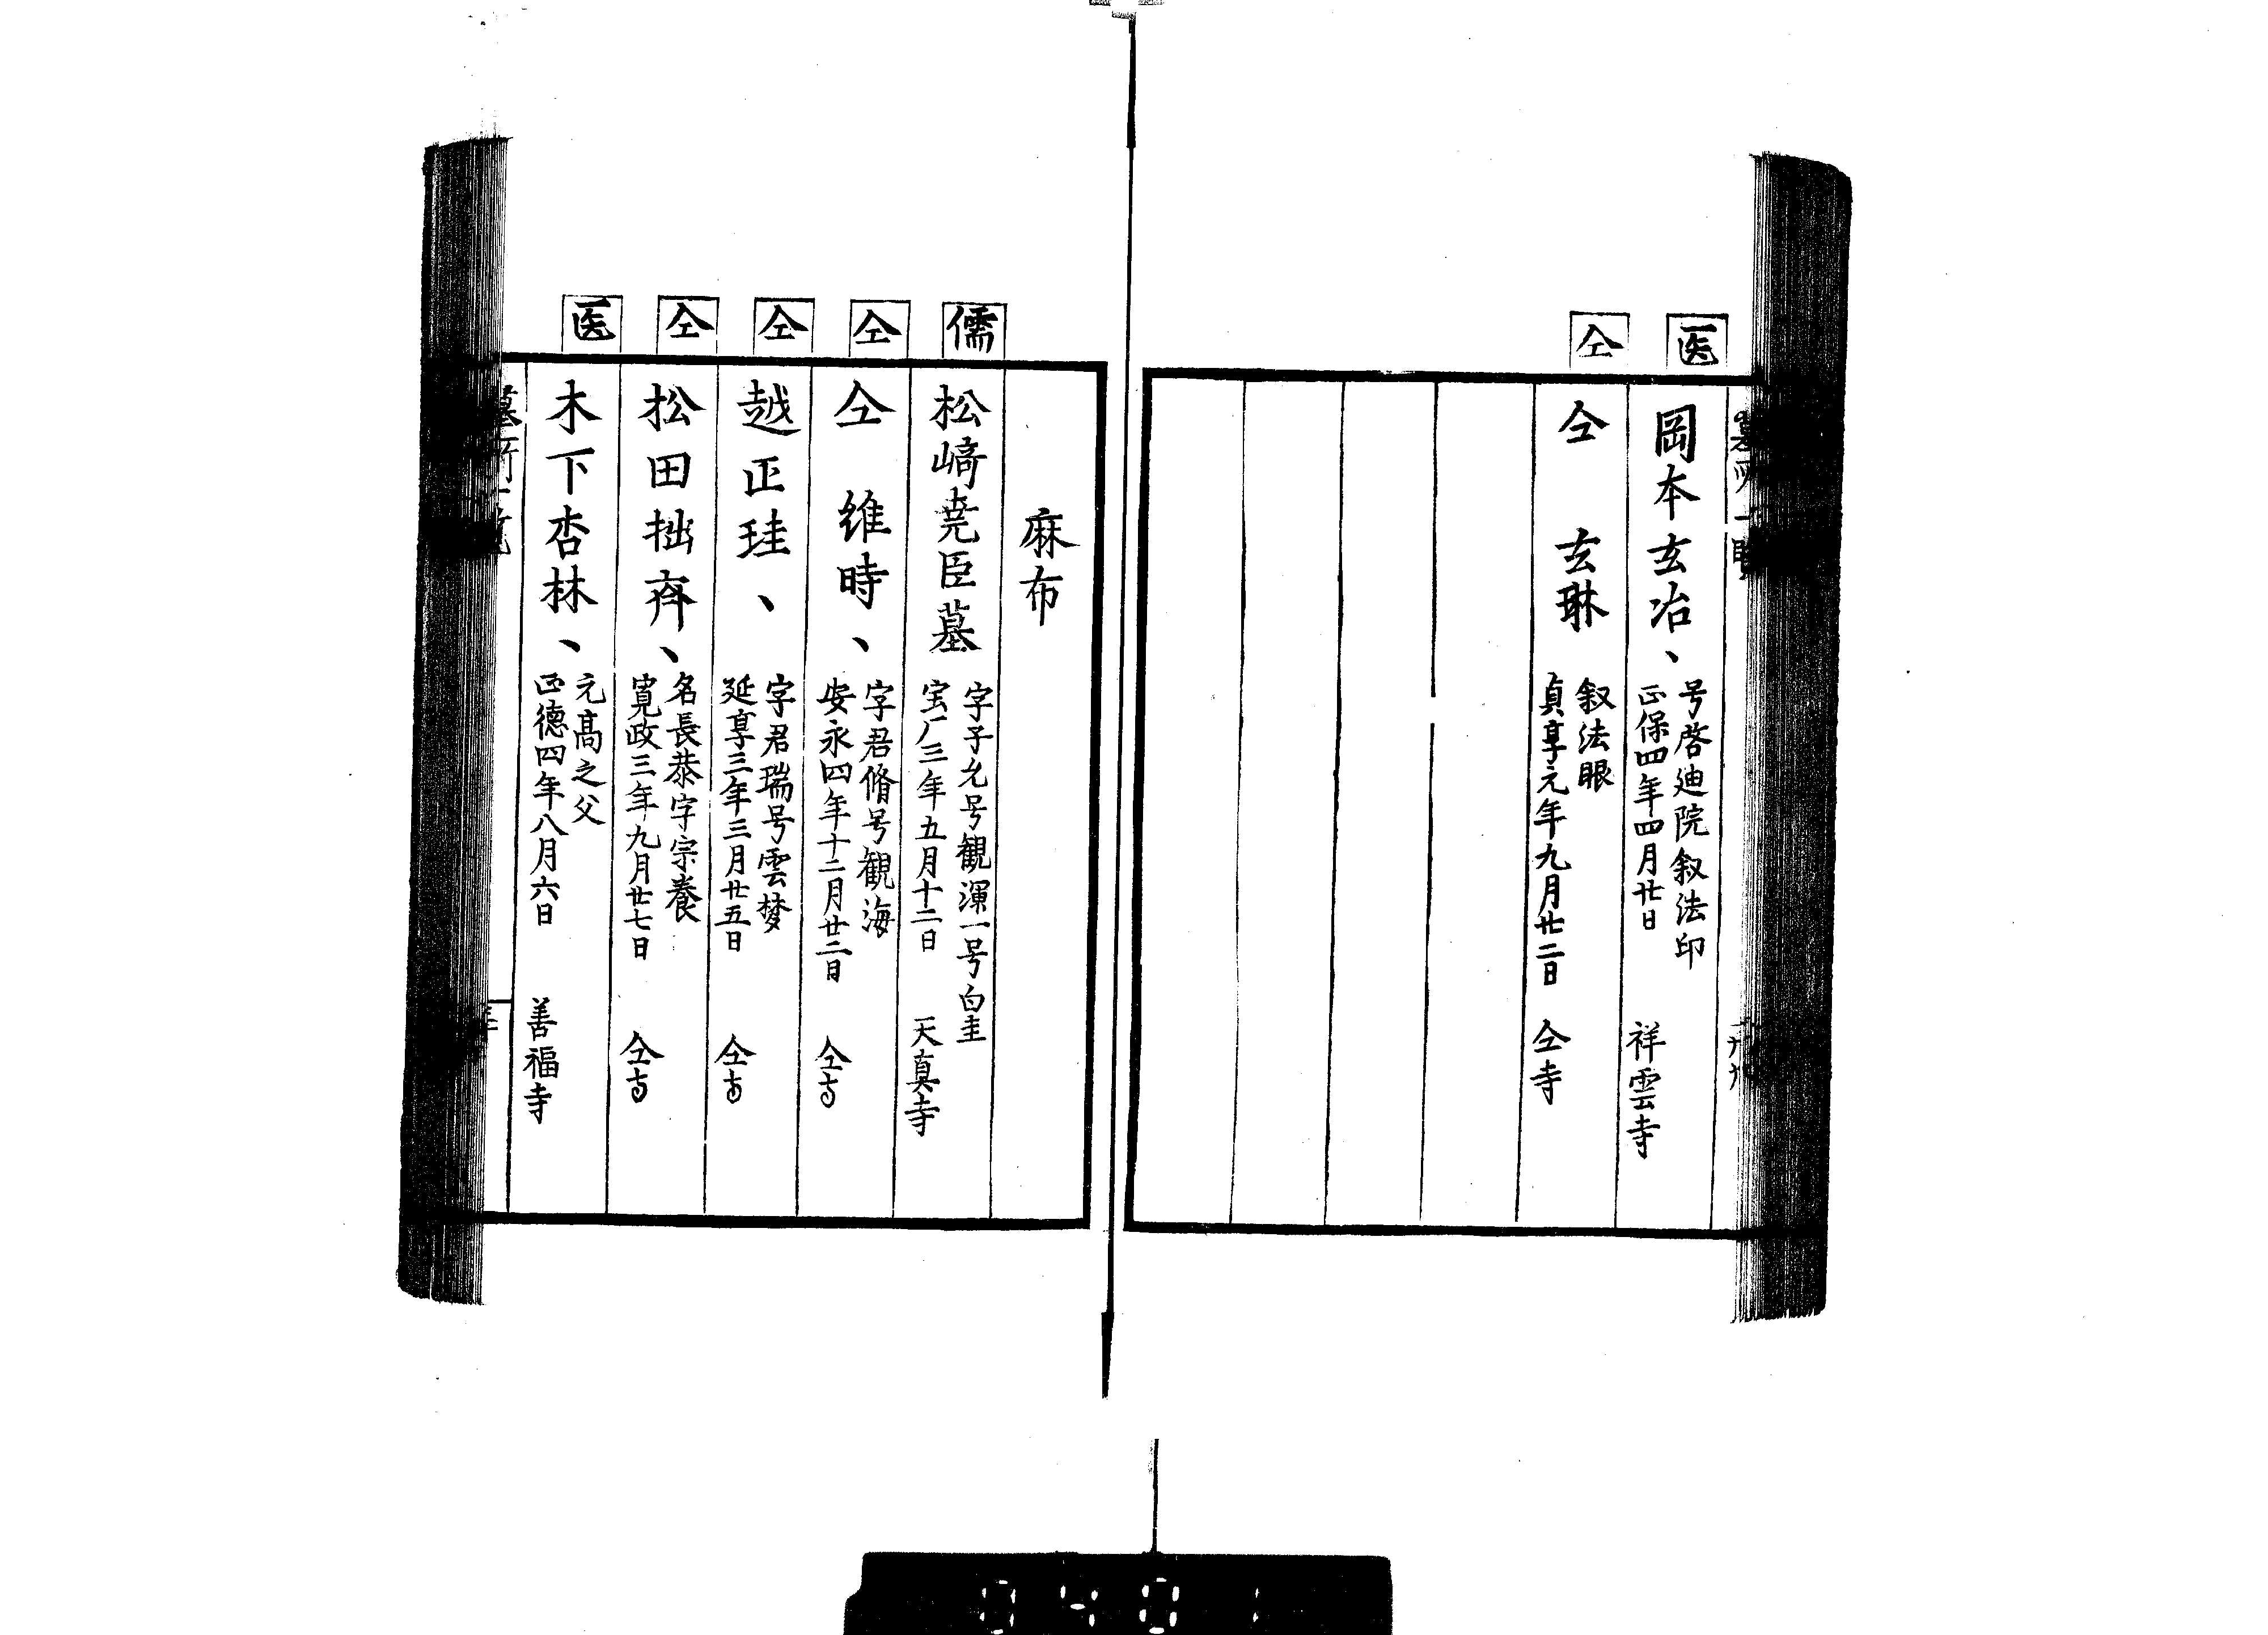 医
岡本玄冶、
号啓迪院叙法印
正保四年四月廿日
祥雲寺
仝
仝 玄琳
叙法眼
貞享元年九月廿二日
仝寺
麻布
儒
松﨑堯臣墓
字子允号観瀾一号白圭
宝厂三年五月十二日
天真寺
仝
仝 維時、
字君脩号観海
安永四年十二月廿二日
仝寺
仝
越正珪、
字君瑞号雲梦
延享三年三月廿五日
仝寺
仝
松田拙斉、
名長恭字宗養
寛政三年九月廿七日
仝寺
医
木下杏林、
元高之父
正德四年八月六日
善福寺